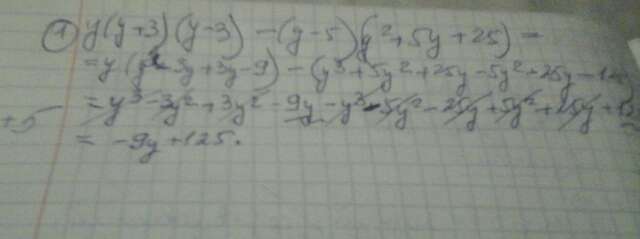 ① y(y+3)(y-3) - (y-5)(y²+5y+25) =
= y (y²-3y+3y-9) - (y³+5y²+25y-5y²+25y-1
= y³-3y²+3y²-9y-y³-5y²-25y+5y²+25y+
+5
= -9y+125.